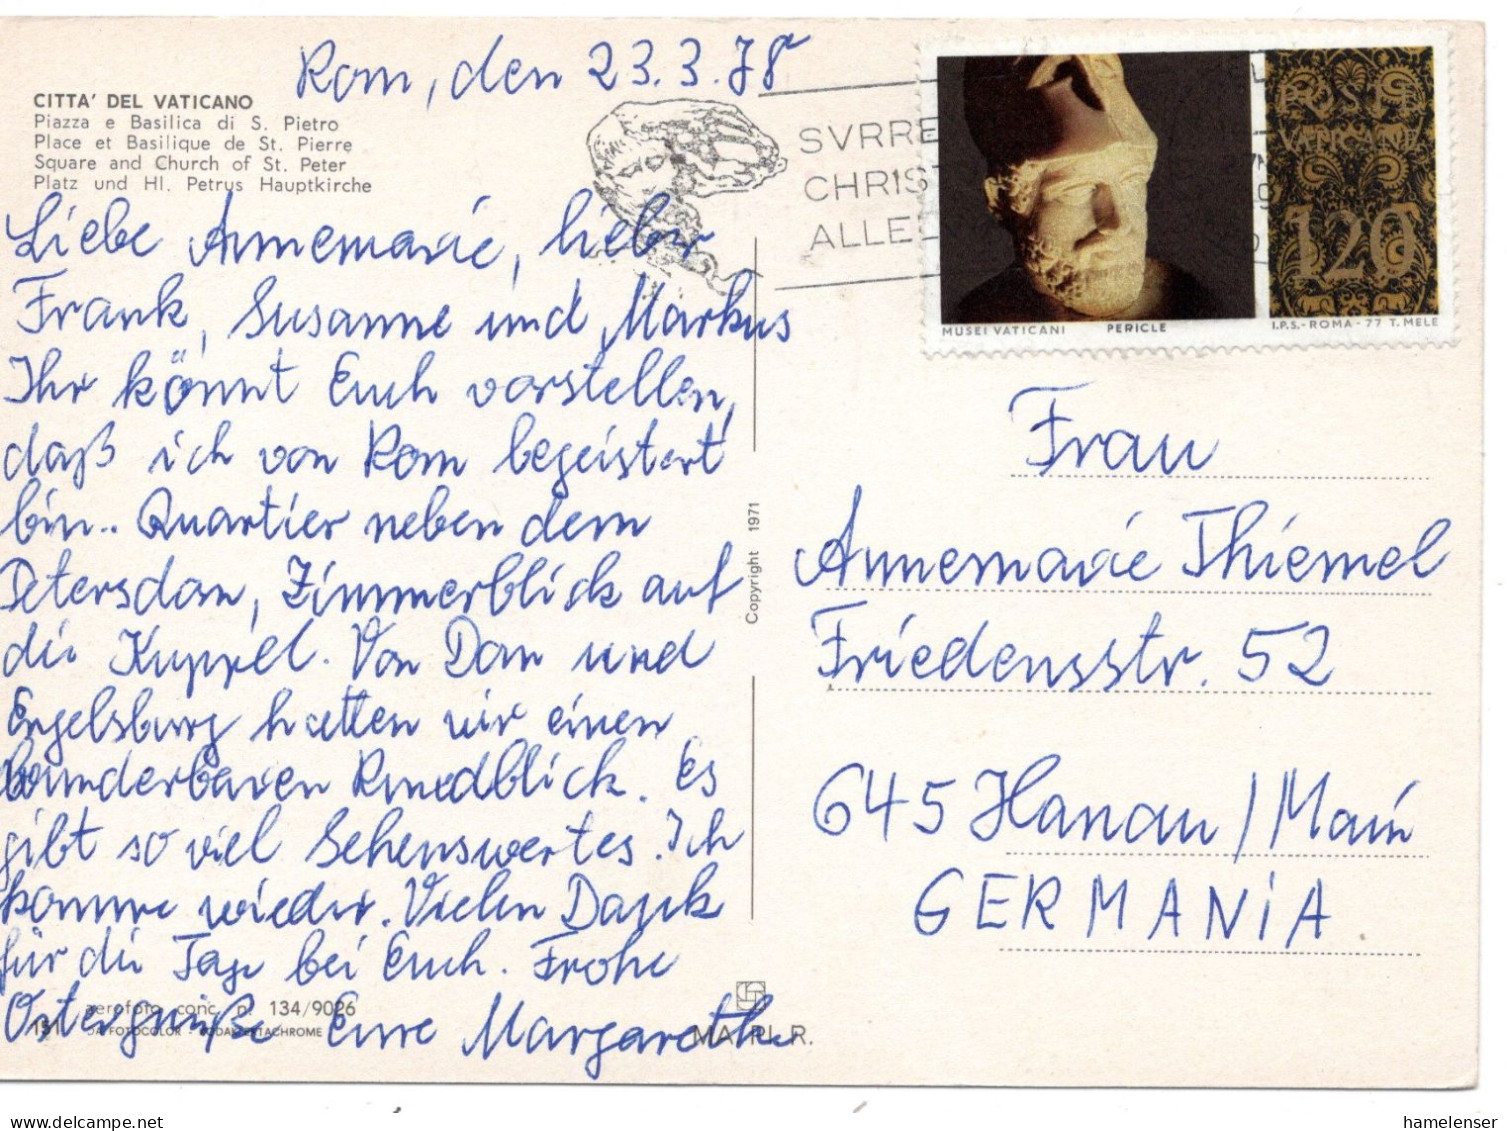 Rom, den 23.3.78
CITTA' DEL VATICANO
Piazza e Basilica di S. Pietro
Place et Basilique de St. Pierre
Square and Church of St. Peter
Platz und Hl. Petrus Hauptkirche
Liebe Annemarie, lieber
Frank, Susanne und Markus
Ihr könnt Euch vorstellen,
daß ich von Rom begeistert
bin.. Quartier neben dem
Petersdom, Zimmerblick auf
die Kuppel. Von Dom und
Engelsburg hatten wir einen
wunderbaren Rundblick. Es
gibt so viel Sehenswertes. Ich
komme wieder. Vielen Dank
für die Tage bei Euch. Frohe
Ostergrüße Eure Margareth
aerofoto conc. n. 134/9026
151
FOTOCOLOR - KODAK EKTACHROME
Copyright 1971
MA. PL. R.
SVRRE
CHRIS
ALLE
POSTE
VATICANE
120
MUSEI VATICANI PERICLE I.P.S.-ROMA-77 T. MELE
Frau
Annemarie Thiemel
Friedensstr. 52
645 Hanau / Main
GERMANiA
hamelenser